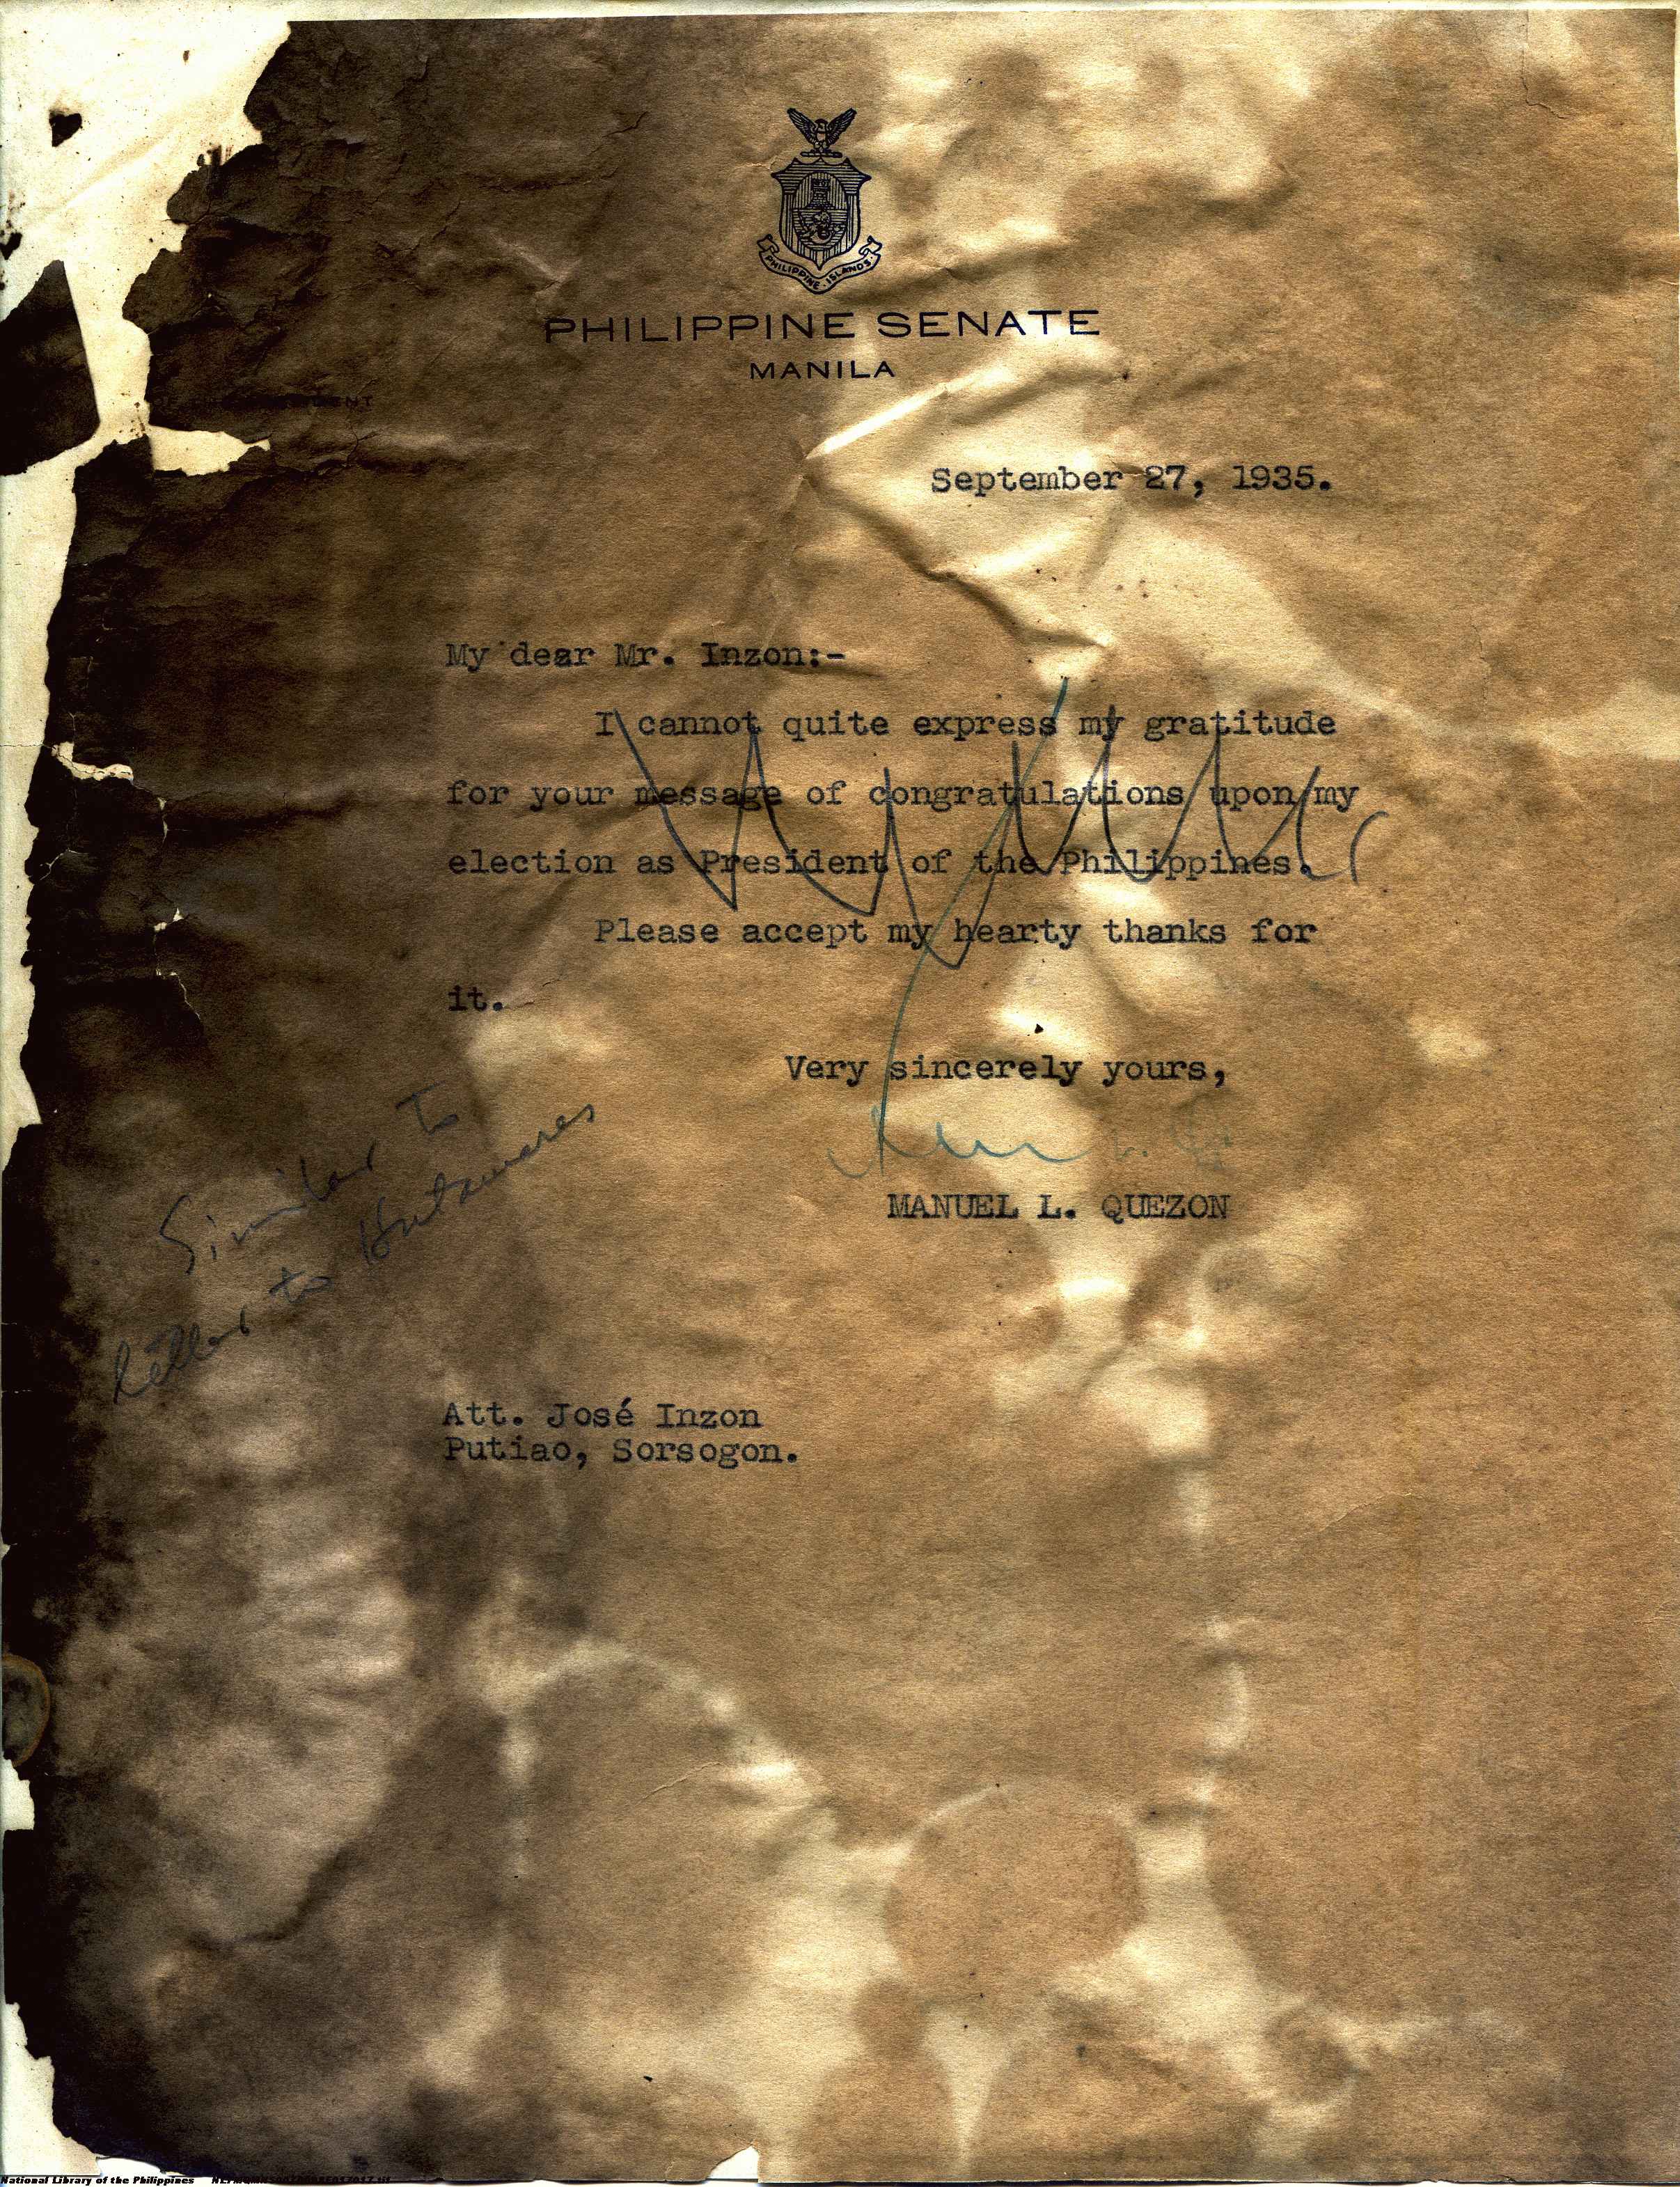 PHILIPPINE ISLANDS
PHILIPPINE SENATE
MANILA
September 27, 1935.
My dear Mr. Inzon:-
I cannot quite express my gratitude
for your message of congratulations upon my
election as President of the Philippines.
Please accept my hearty thanks for
it.
Very sincerely yours,
MANUEL L. QUEZON
Similar to
letter to
Att. José Inzon
Putiao, Sorsogon.
National Library of the Philippines